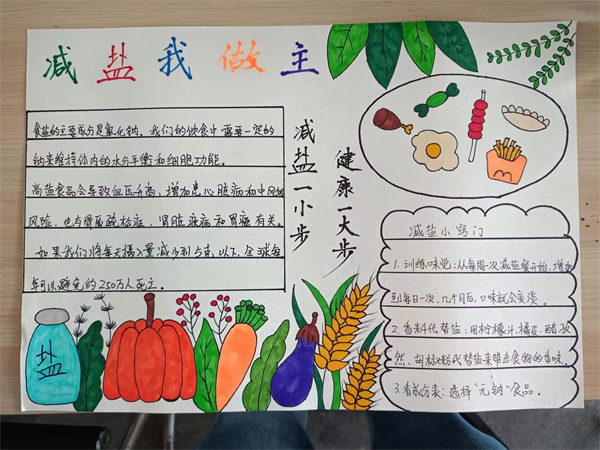 减盐我做主
食盐的主要成分是氯化钠，我们的饮食中需要一定的
钠来维持体内的水分平衡和细胞功能。
高盐食品会导致血压升高，增加患心脏病和中风的
风险，也与骨质疏松症，肾脏疾病和胃癌有关。
如果我们将每天摄入量减少到5克以下，全球每
年可以避免约250万人死亡。
减盐一小步
健康一大步
减盐小窍门
1.训练味觉:从每周一次减盐餐开始，增加
到每日一次，几个月后，口味就会变淡。
2.香料代替盐:用柠檬汁、橘皮、醋或
然、胡椒粉代替盐来带出食物的香味
3.看成分表:选择“无钠”食品。
盐